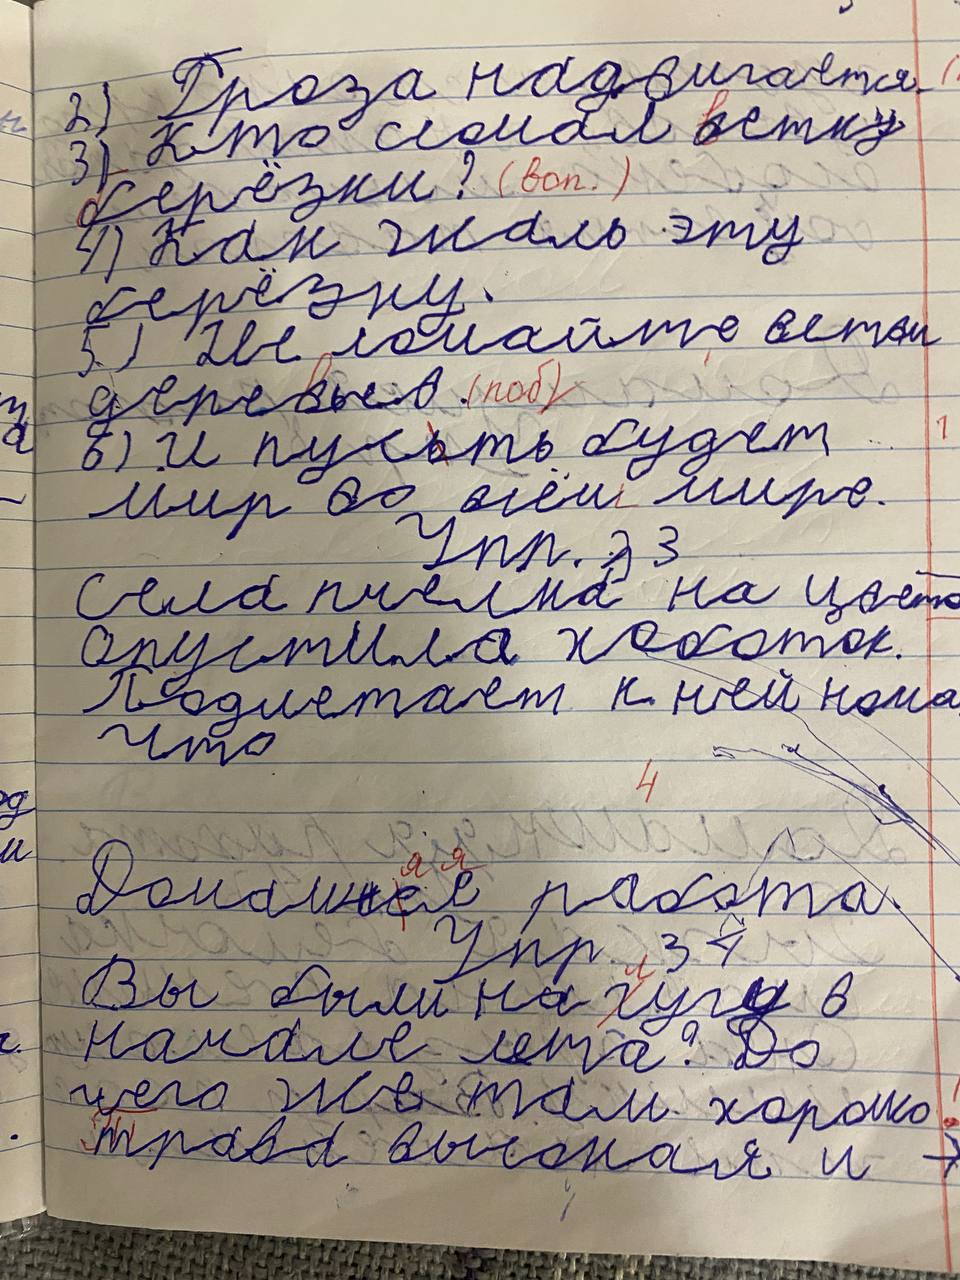 2) Гроза надвигается.
3) Кто сломал ветку
берёзки? (воп.)
4) Как жаль эту
берёзку.
5) Не ломайте ветви
деревьев. (поб)
6) И пусть будет
мир во всём мире.
Упр. 33
Села пчелка на цвето
опустила хоботок.
Подлетает к ней кома
что
4
я я
Домашнее работа.
Упр. 34
л
Вы были на лугу в
начале лета? До
чего же там хорошо
трава высокая и